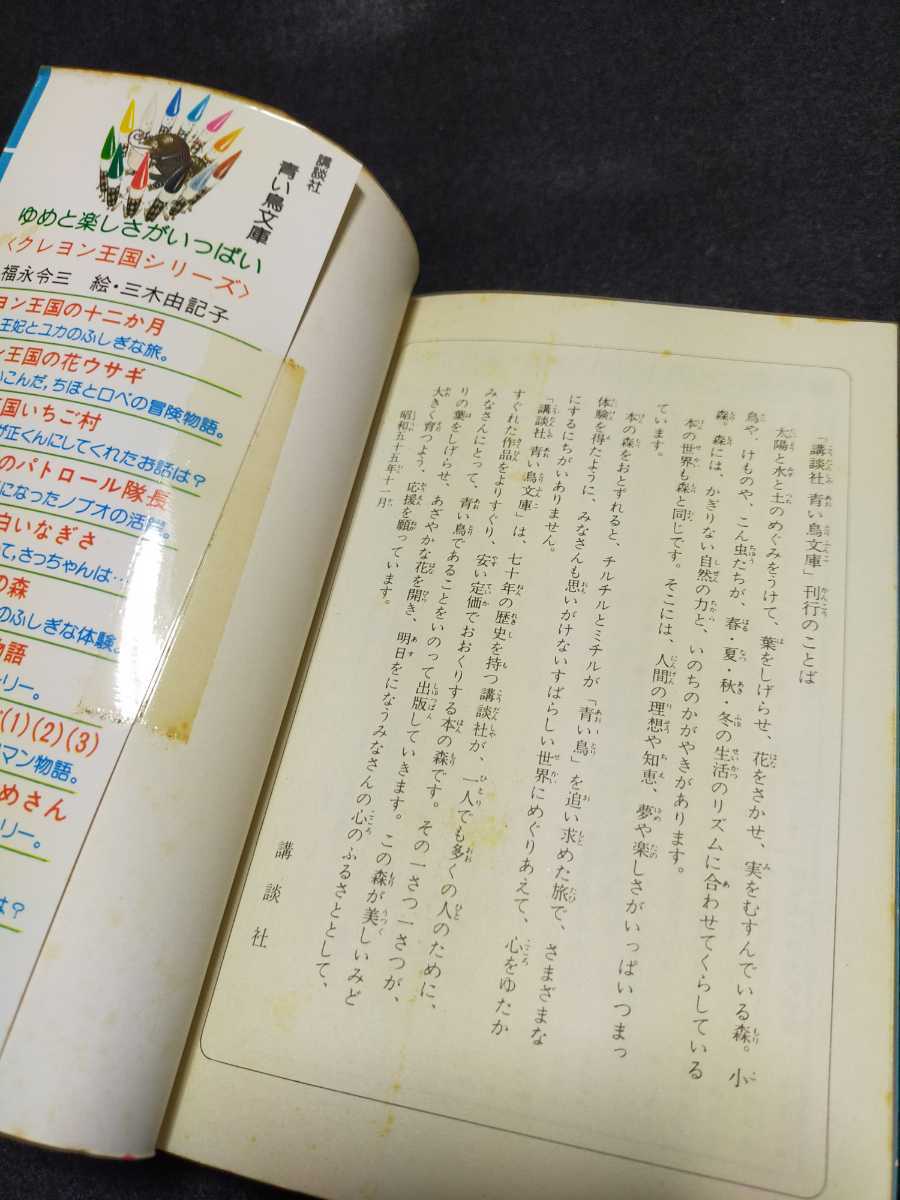 講談社
青い鳥文庫
ゆめと楽しさがいっぱい
〈クレヨン王国シリーズ〉
福永令三 絵・三木由記子
ヨン王国の十二か月
王妃とユカのふしぎな旅。
ン王国の花ウサギ
こんだ,ちほとロペの冒険物語。
国いちご村
が正くんにしてくれたお話は?
のパトロール隊長
になったノブオの活躍。
白いなぎさ
て,さっちゃんは…
の森
のふしぎな体験。
物語
ーリー。
(1)(2)(3)
マン物語。
めさん
ーリー。
は?
「講談社 青い鳥文庫」刊行のことば
太陽と水と土のめぐみをうけて、葉をしげらせ、花をさかせ、実をむすんでいる森。小
鳥や、けものや、こん虫たちが、春・夏・秋・冬の生活のリズムに合わせてくらしている
森。森には、かぎりない自然の力と、いのちのかがやきがあります。
本の世界も森と同じです。そこには、人間の理想や知恵、夢や楽しさがいっぱいつまっ
ています。
本の森をおとずれると、チルチルとミチルが「青い鳥」を追い求めた旅で、さまざまな
体験を得たように、みなさんも思いがけないすばらしい世界にめぐりあえて、心をゆたか
にするにちがいありません。
「講談社 青い鳥文庫」は、七十年の歴史を持つ講談社が、一人でも多くの人のために、
すぐれた作品をよりすぐり、安い定価でおおくりする本の森です。その一さつ一さつが、
みなさんにとって、青い鳥であることをいのって出版していきます。この森が美しいみど
りの葉をしげらせ、あざやかな花を開き、明日をになうみなさんの心のふるさととして、
大きく育つよう、応援を願っています。
昭和五十五年十一月
講談社